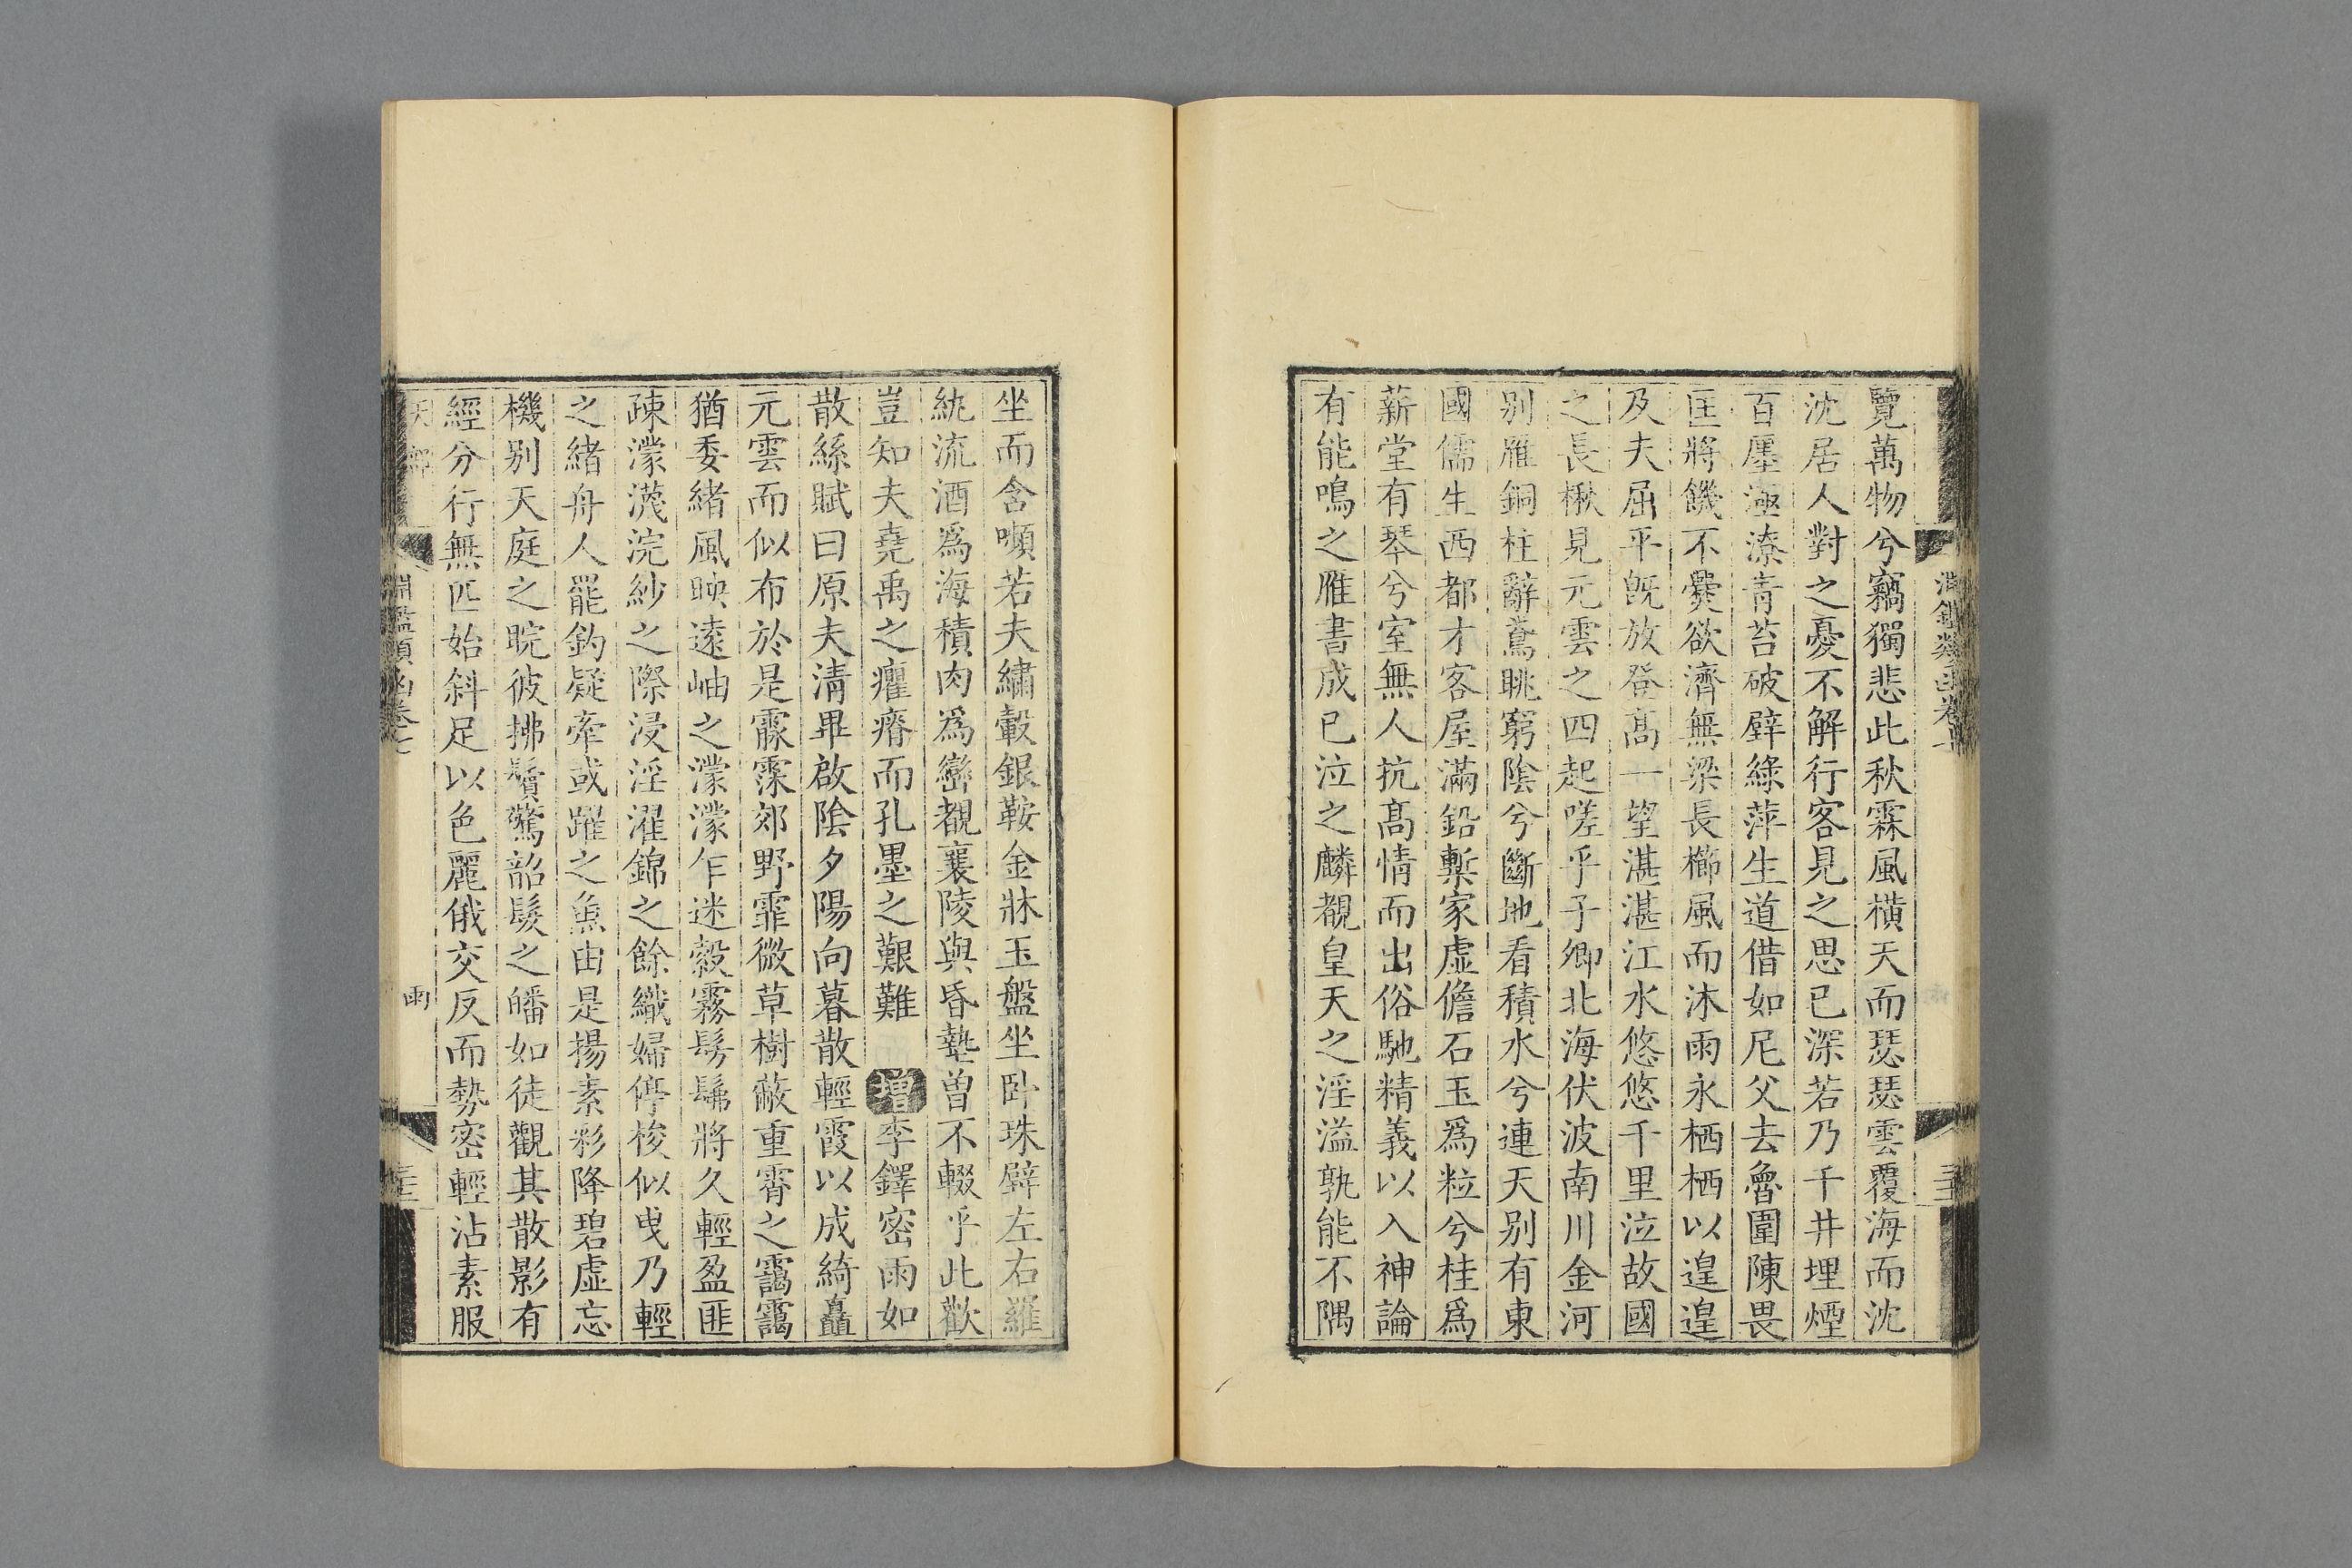 覽萬物兮竊獨悲此秋霖風橫天而瑟瑟雲覆海而沈
沈居人對之憂不解行客見之思已深若乃千井埋煙
百廛涵潦青苔破壁綠萍生道借如尼父去魯圍陳畏
匡將饑不爨欲濟無梁長櫛風而沐雨永栖栖以遑遑
及夫屈平旣放登髙一望湛湛江水悠悠千里泣故國
之長楸見元雲之四起嗟乎子卿北海伏波南川金河
别雁銅柱辭鳶眺窮隂兮斷地看積水兮連天别有東
國儒生西都才客屋滿鉛槧家虛儋石玉爲粒兮桂爲
薪堂有琴兮室無人抗髙情而出俗馳精義以入神論
有能鳴之雁書成已泣之麟覩皇天之淫溢孰能不隅
坐而含嚬若夫繡轂銀鞍金牀玉盤坐卧珠壁左右羅
紈流酒爲海積肉爲巒覩襄陵與昏墊曾不輟乎此歡
豈知夫堯禹之癯瘠而孔墨之艱難 增 李鐸密雨如
散絲賦曰原夫清畢啟隂夕陽向暮散輕霞以成綺矗
元雲而似布於是霢霂郊野霏微草樹蔽重霄之靄靄
猶委緒風映遠岫之濛濛乍迷縠霧髣髴將久輕盈匪
疎濛濛浣紗之際浸淫濯錦之餘織婦停梭似曳乃輕
之緒舟人罷釣疑牽或躍之魚由是揚素彩降碧虛忘
機别天庭之晥彼拂鬢驚韶髮之皤如徒觀其散影有
經分行無匹始斜足以色麗俄交反而勢密輕沾素服
天部
淵鑑類函卷七
雨